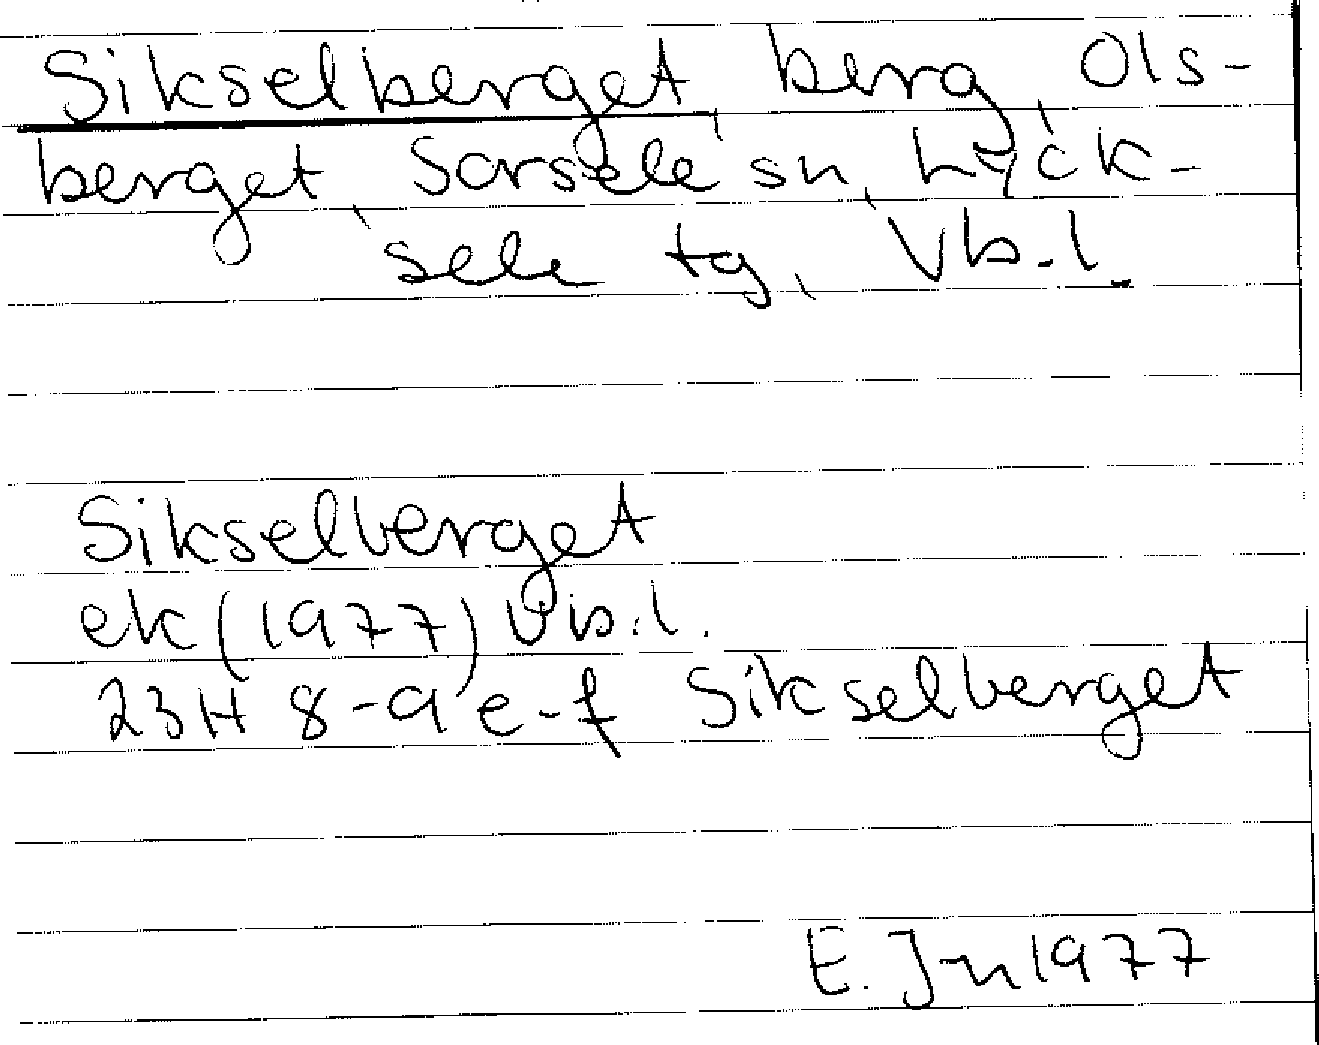 Sikselberget, berg, Ols-
berget, Sorsele sn, Lyck-
sele tg, Vb.l.
Sikselberget
ek (1977) Vb.l.
23H 8-9 e-f Sikselberget
E. Jn 1977